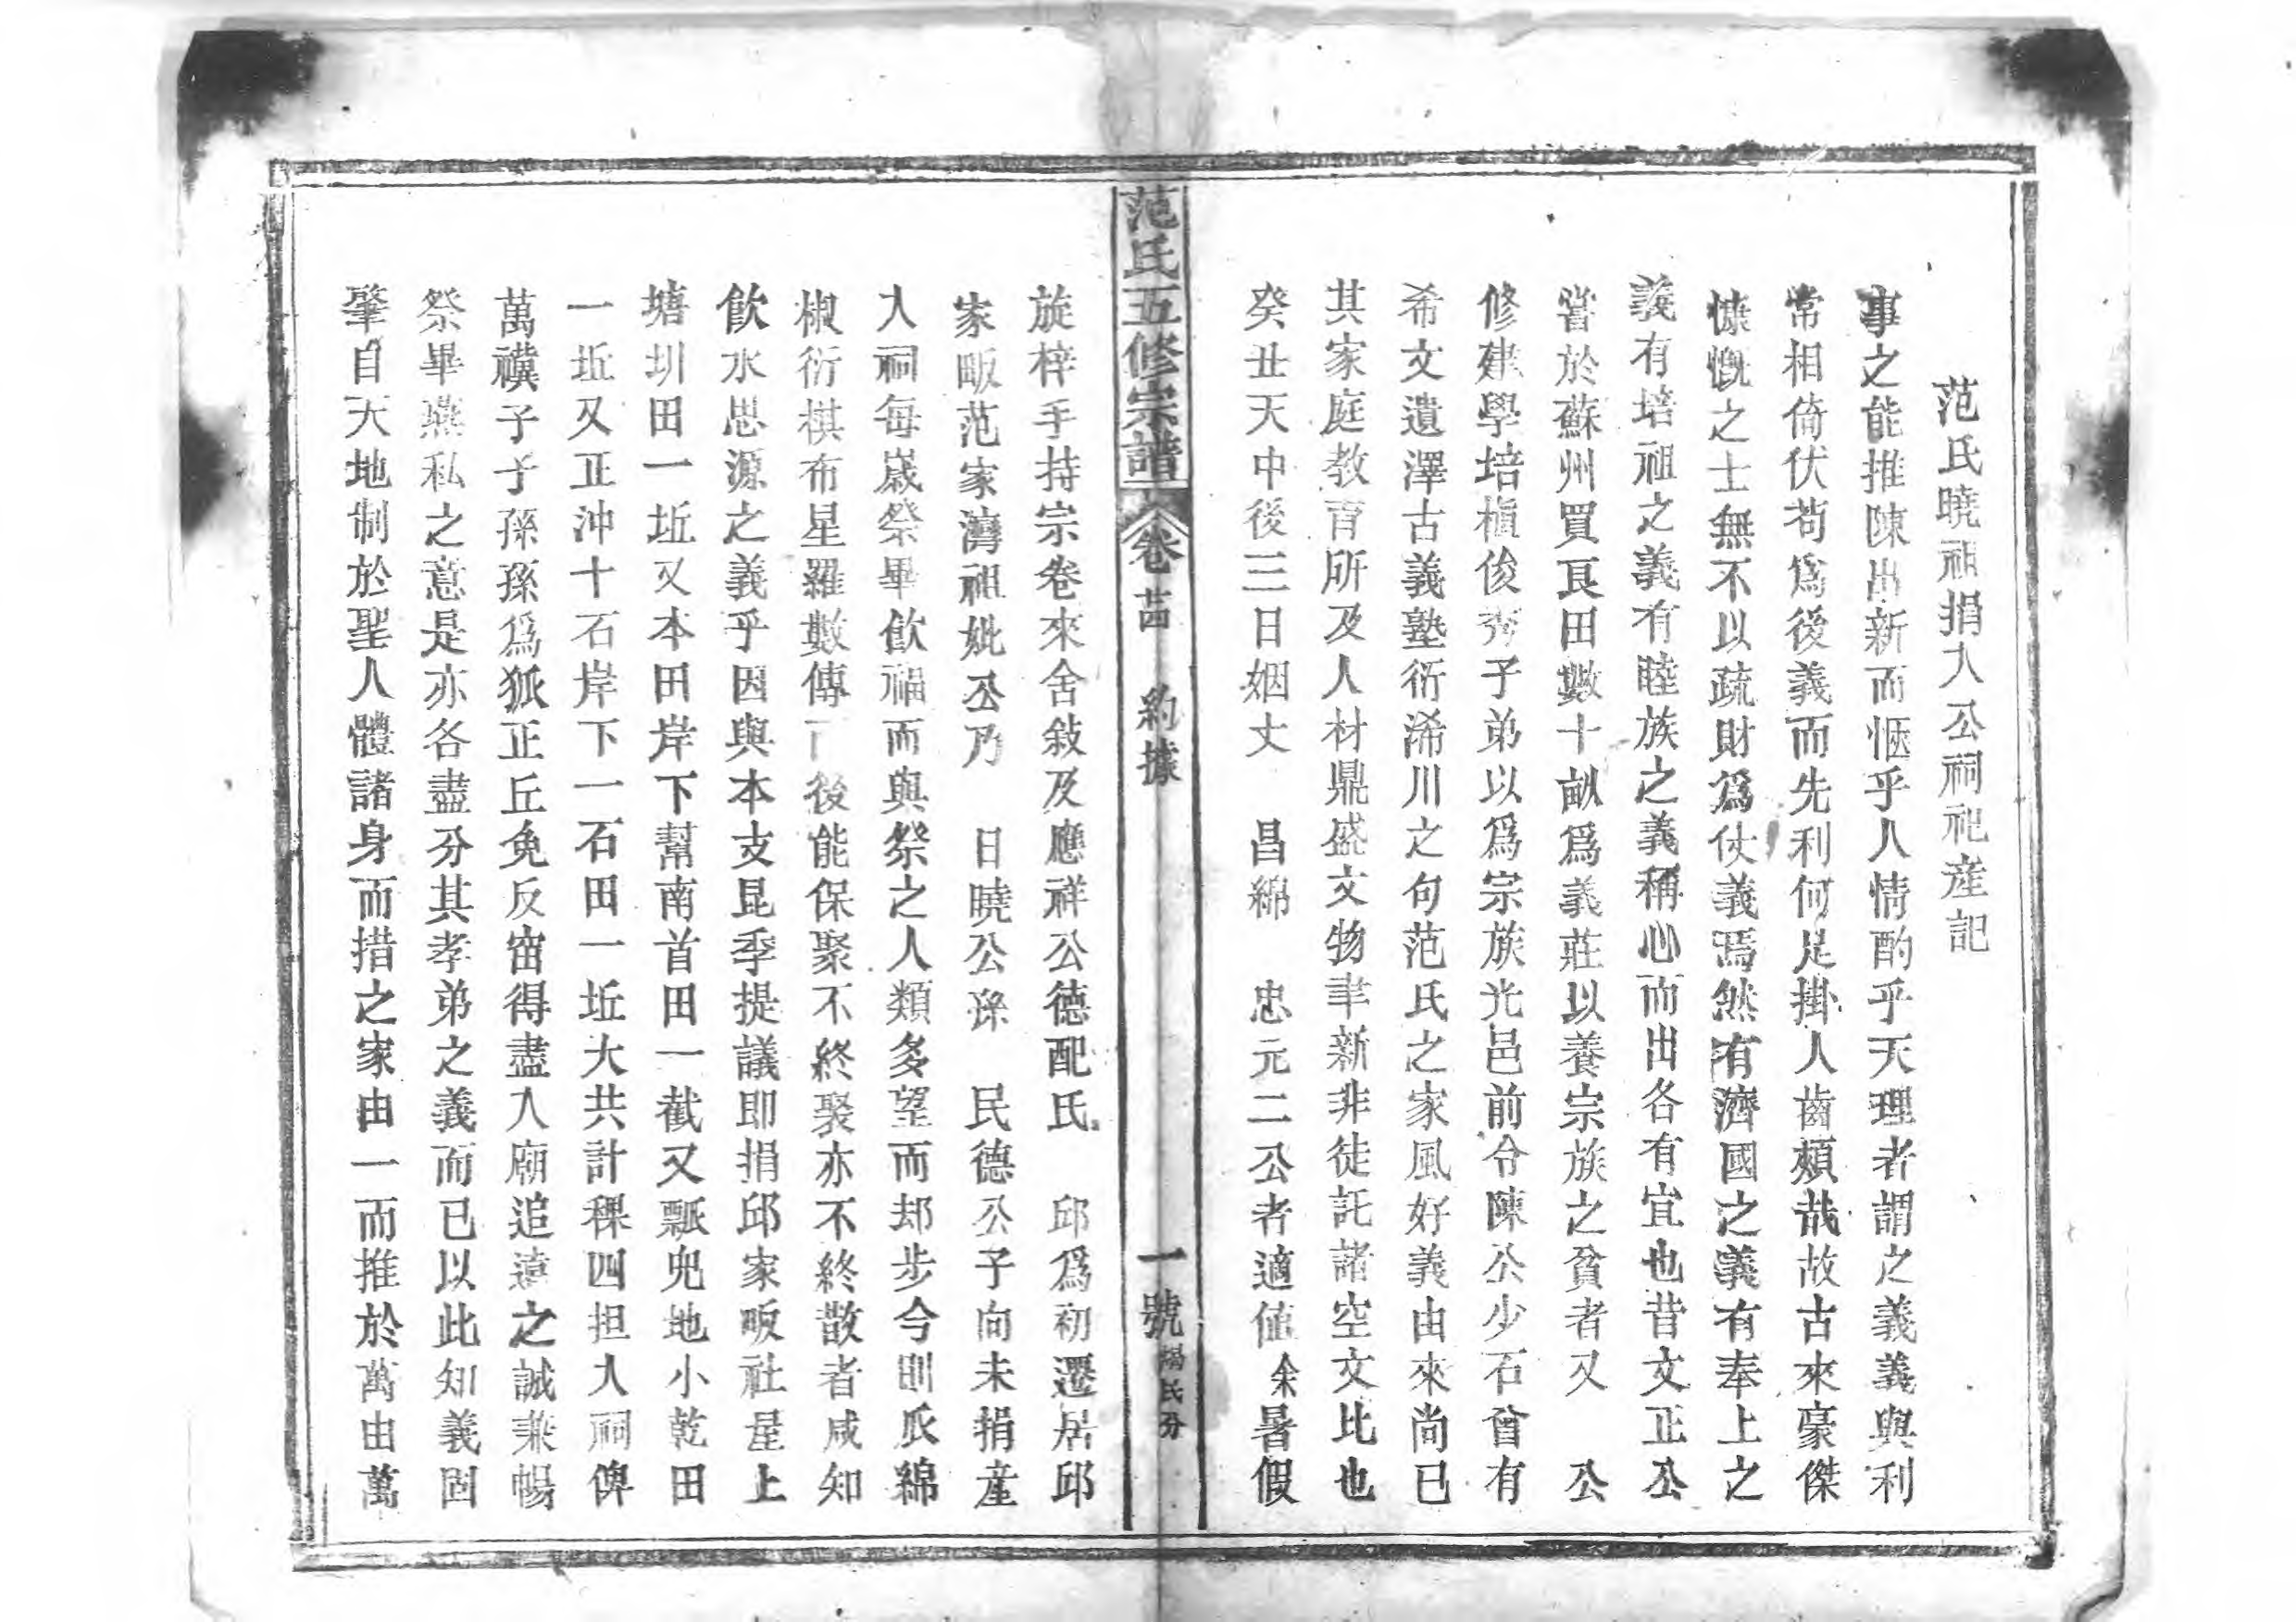 范氏曉祖捐入公祠祀產記
事之能推陳出新而愜乎人情酌乎天理者謂之義義與利
常相倚伏苟爲後義而先利何足掛人齒頰哉故古來豪傑
慷慨之士無不以疏財爲仗義焉然有濟國之義有奉上之
義有培祖之義有睦族之義稱心而出各有宜也昔文正公
嘗於蘇州買良田數十畝爲義莊以養宗族之貧者又　公
修建學培植俊秀子弟以爲宗族光邑前令陳公少石曾有
希文遺澤古義塾衍浠川之句范氏之家風好義由來尚已
其家庭教育所及人材鼎盛文物聿新非徒託諸空文比也
癸丑天中後三日姻丈　昌綿　忠元二公者適值余暑假
范氏五修宗譜　卷苗　約據　一號 楊氏分
旋梓手持宗卷來舍敍及應祥公德配氏　邱爲初遷居邱
家畈范家灣祖妣公乃　日曉公孫　民德公子向未捐產
入祠每歲祭畢飲福而與祭之人類多望而却步今則瓜綿
椒衍棋布星羅數傳後能保聚不終聚亦不終散者咸知
飲水思源之義乎因與本支昆季提議即捐邱家畈社屋上
塘圳田一坵又本田岸下幫南首田一截又瓢兜地小乾田
一坵又正沖十石岸下一石田一坵大共計稞四担入祠俾
萬禩子子孫孫爲狐正丘免反宙得盡入廟追遠之誠兼暢
祭畢燕私之意是亦各盡分其孝弟之義而已以此知義固
肇自天地制於聖人體諸身而措之家由一而推於萬由萬